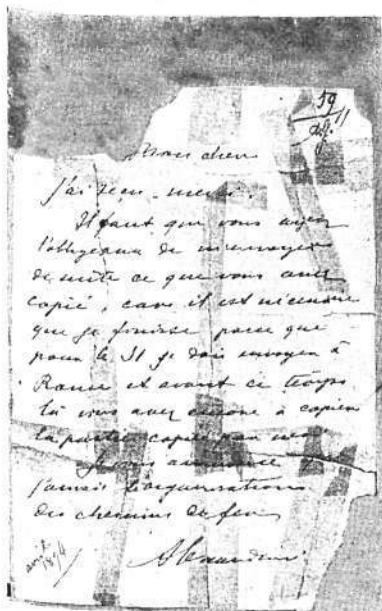 59
Mon cher
J'ai reçu - merci.
Il faut que vous ayez
l'obligeance de m'envoyer
de suite ce que vous avez
copié, car il est nécessaire
que je finisse parce que
pour le 31 je dois envoyer à
Rome et avant ce temps
là vous avez encore à copier
la partie copiée par moi
Je vous annonce
j'aurais l'organisation
des chemins de fer
Alexandrine
avril
1894